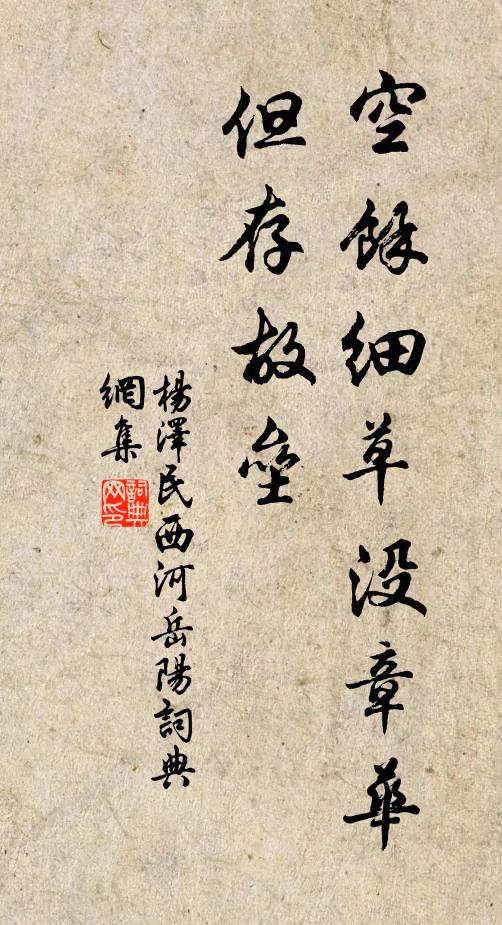 空餘細草没章華
但存故壘
楊澤民西河岳陽詞典
網集
詞典
网印